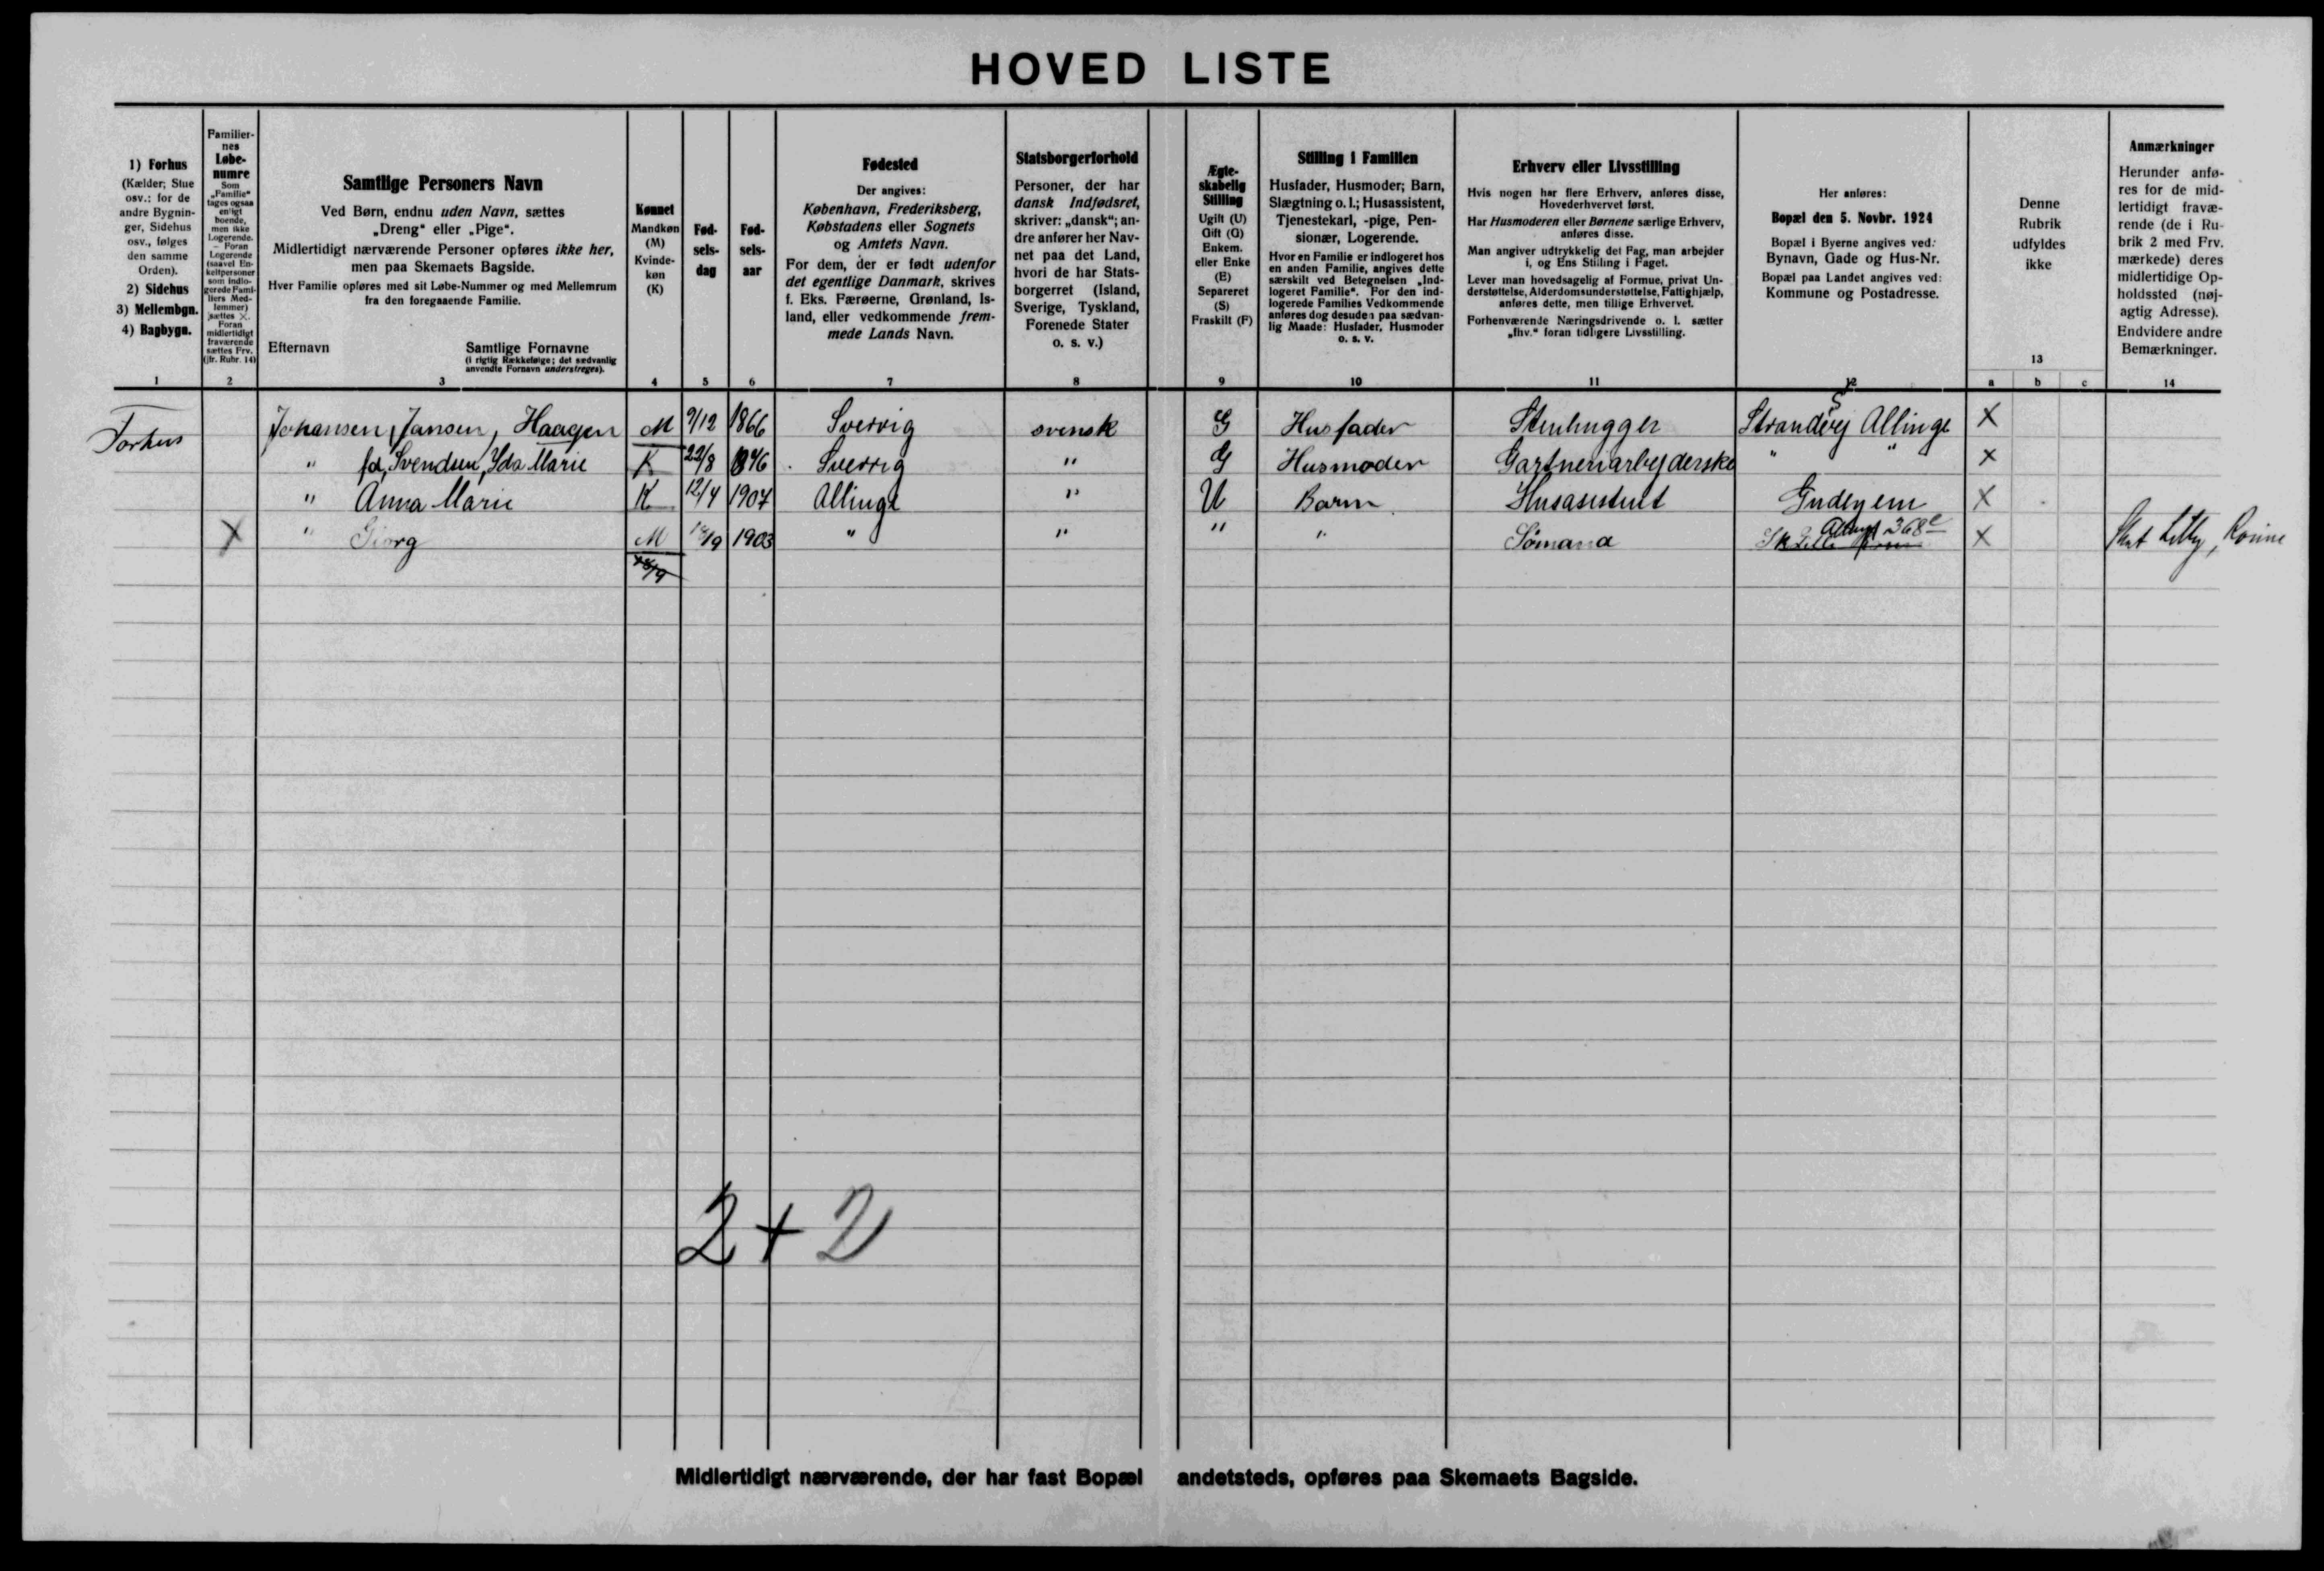 HOVED LISTE
1) Forhus
(Kælder; Stue
osv.: for de
andre Bygnin-
ger, Sidehus
osv., følges
den samme
Orden).
2) Sidehus
3) Mellembgn.
4) Bagbygn.
1
Familier-
nes
Løbe-
numre
Som
„Familie"
tages ogsaa
enligt
boende,
men ikke
Logerende.
– Foran
Logerende
(saavel En-
keltpersoner
som indlo-
gerede Fami-
liers Med-
lemmer)
sættes X.
Foran
midlertidigt
fraværende
sættes Frv.
(jfr. Rubr. 14)
2
Samtlige Personers Navn
Ved Børn, endnu uden Navn, sættes
„Dreng" eller „Pige".
Midlertidigt nærværende Personer opføres ikke her,
men paa Skemaets Bagside.
Hver Familie opføres med sit Løbe-Nummer og med Mellemrum
fra den foregaaende Familie.
Efternavn
Samtlige Fornavne
(i rigtig Rækkefølge; det sædvanlig
anvendte Fornavn understreges).
3
Kønnet
Mandkøn
(M)
Kvinde-
køn
(K)
4
Fød-
sels-
dag
5
Fød-
sels-
aar
6
Fødested
Der angives:
København, Frederiksberg,
Købstadens eller Sognets
og Amtets Navn.
For dem, der er født udenfor
det egentlige Danmark, skrives
f. Eks. Færøerne, Grønland, Is-
land, eller vedkommende frem-
mede Lands Navn.
7
Statsborgerforhold
Personer, der har
dansk Indfødsret,
skriver: „dansk"; an-
dre anfører her Nav-
net paa det Land,
hvori de har Stats-
borgerret (Island,
Sverige, Tyskland,
Forenede Stater
o. s. v.)
8
Ægte-
skabelig
Stilling
Ugift (U)
Gift (G)
Enkem.
eller Enke
(E)
Separeret
(S)
Fraskilt (F)
9
Stilling i Familien
Husfader, Husmoder; Barn,
Slægtning o. l.; Husassistent,
Tjenestekarl, -pige, Pen-
sionær, Logerende.
Hvor en Familie er indlogeret hos
en anden Familie, angives dette
særskilt ved Betegnelsen „Ind-
logeret Familie". For den ind-
logerede Families Vedkommende
anføres dog desuden paa sædvan-
lig Maade: Husfader, Husmoder
o. s. v.
10
Erhverv eller Livsstilling
Hvis nogen har flere Erhverv, anføres disse,
Hovederhvervet først.
Har Husmoderen eller Børnene særlige Erhverv,
anføres disse.
Man angiver udtrykkelig det Fag, man arbejder
i, og Ens Stilling i Faget.
Lever man hovedsagelig af Formue, privat Un-
derstøttelse, Alderdomsunderstøttelse, Fattighjælp,
anføres dette, men tillige Erhvervet.
Forhenværende Næringsdrivende o. l. sætter
„fhv." foran tidligere Livsstilling.
11
Her anføres:
Bopæl den 5. Novbr. 1924
Bopæl i Byerne angives ved:
Bynavn, Gade og Hus-Nr.
Bopæl paa Landet angives ved:
Kommune og Postadresse.
12
Denne
Rubrik
udfyldes
ikke
13
a b c
Anmærkninger
Herunder anfø-
res for de mid-
lertidigt fravæ-
rende (de i Ru-
brik 2 med Frv.
mærkede) deres
midlertidige Op-
holdssted (nøj-
agtig Adresse).
Endvidere andre
Bemærkninger.
14
Forhus Johansen, Jansen, Haagen M 9/12 1866 Sverrig svensk G Husfader Stenhugger Strandvej Allinge X
" fd, Svendsen, Yda Marie K 22/8 Sverrig " G Husmoder Gartneriarbejderske " " X
" Anna Marie K 12/4 1907 Allinge " U Barn Husasistent Gudhjem X
X " Georg M 1903 " " " " Sømand 368 X Rønne
2 + 2
Midlertidigt nærværende, der har fast Bopæl andetsteds, opføres paa Skemaets Bagside.